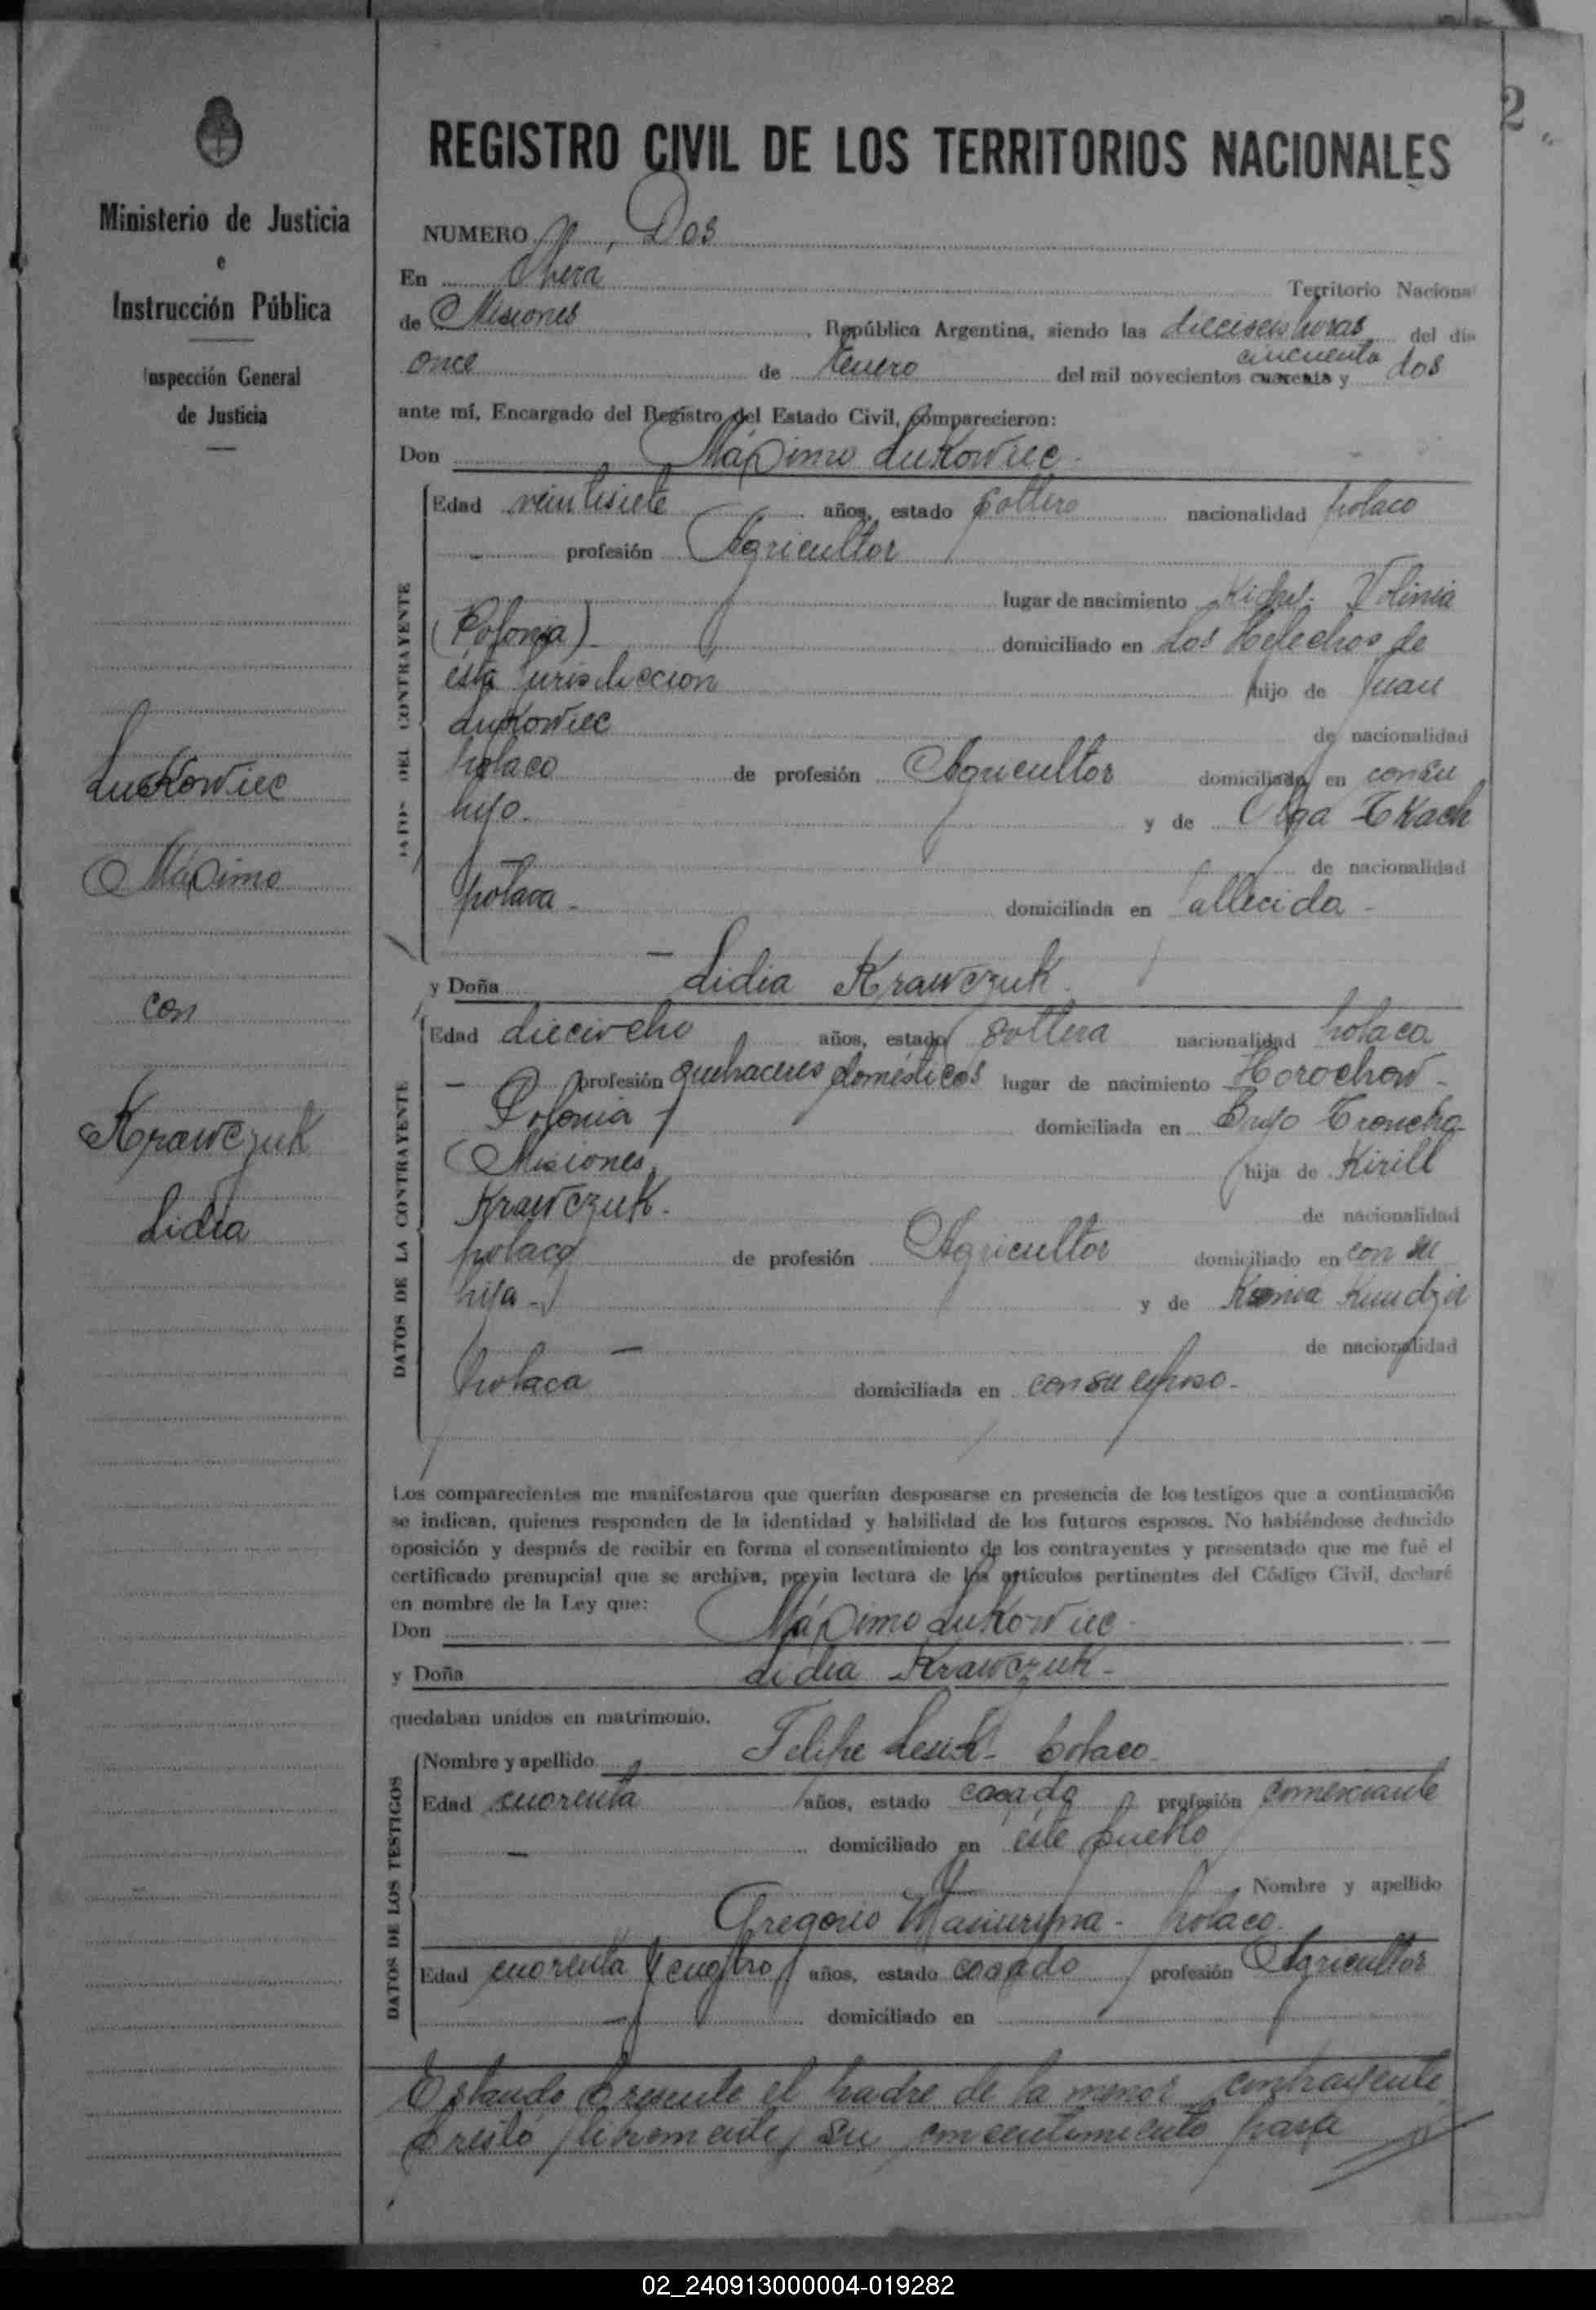 2
Ministerio de Justicia
e
Instrucción Pública
Inspección General
de Justicia
Lukowiec
Máximo
con
Krawczuk
Lidia
REGISTRO CIVIL DE LOS TERRITORIOS NACIONALES
NUMERO Dos
En Oberá Territorio Nacional
de Misiones, República Argentina, siendo las dieciseis horas del día
cincuenta
once de Enero del mil novecientos cuarenta y dos
ante mí, Encargado del Registro del Estado Civil, comparecieron:
Don Máximo Lukowiec
DATOS DEL CONTRAYENTE
Edad veintisiete años, estado soltero nacionalidad polaco
profesión Agricultor
lugar de nacimiento Volinia
(Polonia) domiciliado en Los Helechos de
ésta jurisdicción hijo de Juan
Lukowiec de nacionalidad
polaco de profesión Agricultor domiciliado en con su
hijo. y de Olga Tkach
de nacionalidad
polaca - domiciliada en fallecida -
y Doña Lidia Krawczuk.
DATOS DE LA CONTRAYENTE
Edad dieciocho años, estado soltera nacionalidad polaca
- profesión quehaceres domésticos lugar de nacimiento Horochow -
Polonia - domiciliada en Troncho-
Misiones hija de Kirill
Krawczuk. de nacionalidad
polaco de profesión Agricultor domiciliado en con su
hija - y de Ksenia Kundzir
de nacionalidad
polaca domiciliada en con su esposo.
Los comparecientes me manifestaron que querían desposarse en presencia de los testigos que a continuación
se indican, quienes responden de la identidad y habilidad de los futuros esposos. No habiéndose deducido
oposición y después de recibir en forma el consentimiento de los contrayentes y presentado que me fué el
certificado prenupcial que se archiva, previa lectura de los artículos pertinentes del Código Civil, declaré
en nombre de la Ley que:
Don Máximo Lukowiec -
y Doña Lidia Krawczuk -
quedaban unidos en matrimonio.
DATOS DE LOS TESTIGOS
Nombre y apellido Felipe Lesik - polaco
Edad cuarenta años, estado casado profesión comerciante
- domiciliado en éste pueblo
Nombre y apellido
Gregorio - polaco.
Edad cuarenta y cuatro años, estado casado profesión Agricultor
domiciliado en
Estando presente el padre de la menor contrayente
prestó libremente su consentimiento para
02_240913000004-019282